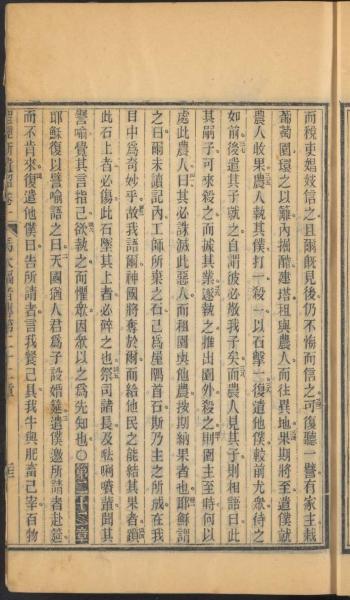 而稅吏娼妓信之且爾既見後仍不悔而信之可復聽一譬有家主栽
葡萄園環之以籬內掘酢建塔租與農人而往異地果期將至遣僕就
農人收果農人執其僕打一殺一以石擊一復遣他僕較前尤衆待之
如前後遣其子就之自謂彼必敬我子矣而農人見其子則相語曰此
其嗣子可來殺之而據其業遂執之推出園外殺之則園主至時何以
處此農人曰其必誅滅此惡人而租園與他農按期納果者也耶穌謂
之曰爾未讀記內工師所棄之石已爲屋隅首石斯乃主之所成在我
目中爲奇妙乎故我語爾神國將奪於爾而給他民之能結其果者躓
此石上者必傷此石墜其上者必碎之也祭司諸長及𠵽唎㘔輩聞其
譬喻覺其言指己欲執之而懼衆因衆以之爲先知也○第二十二章
耶穌復以譬喻語之曰天國猶人君爲子設婚筵遣僕邀所請者赴筵
而不肯來復遣他僕曰告所請者言我餐已具我牛與肥畜已宰百物
馬太福音傳第二十二章